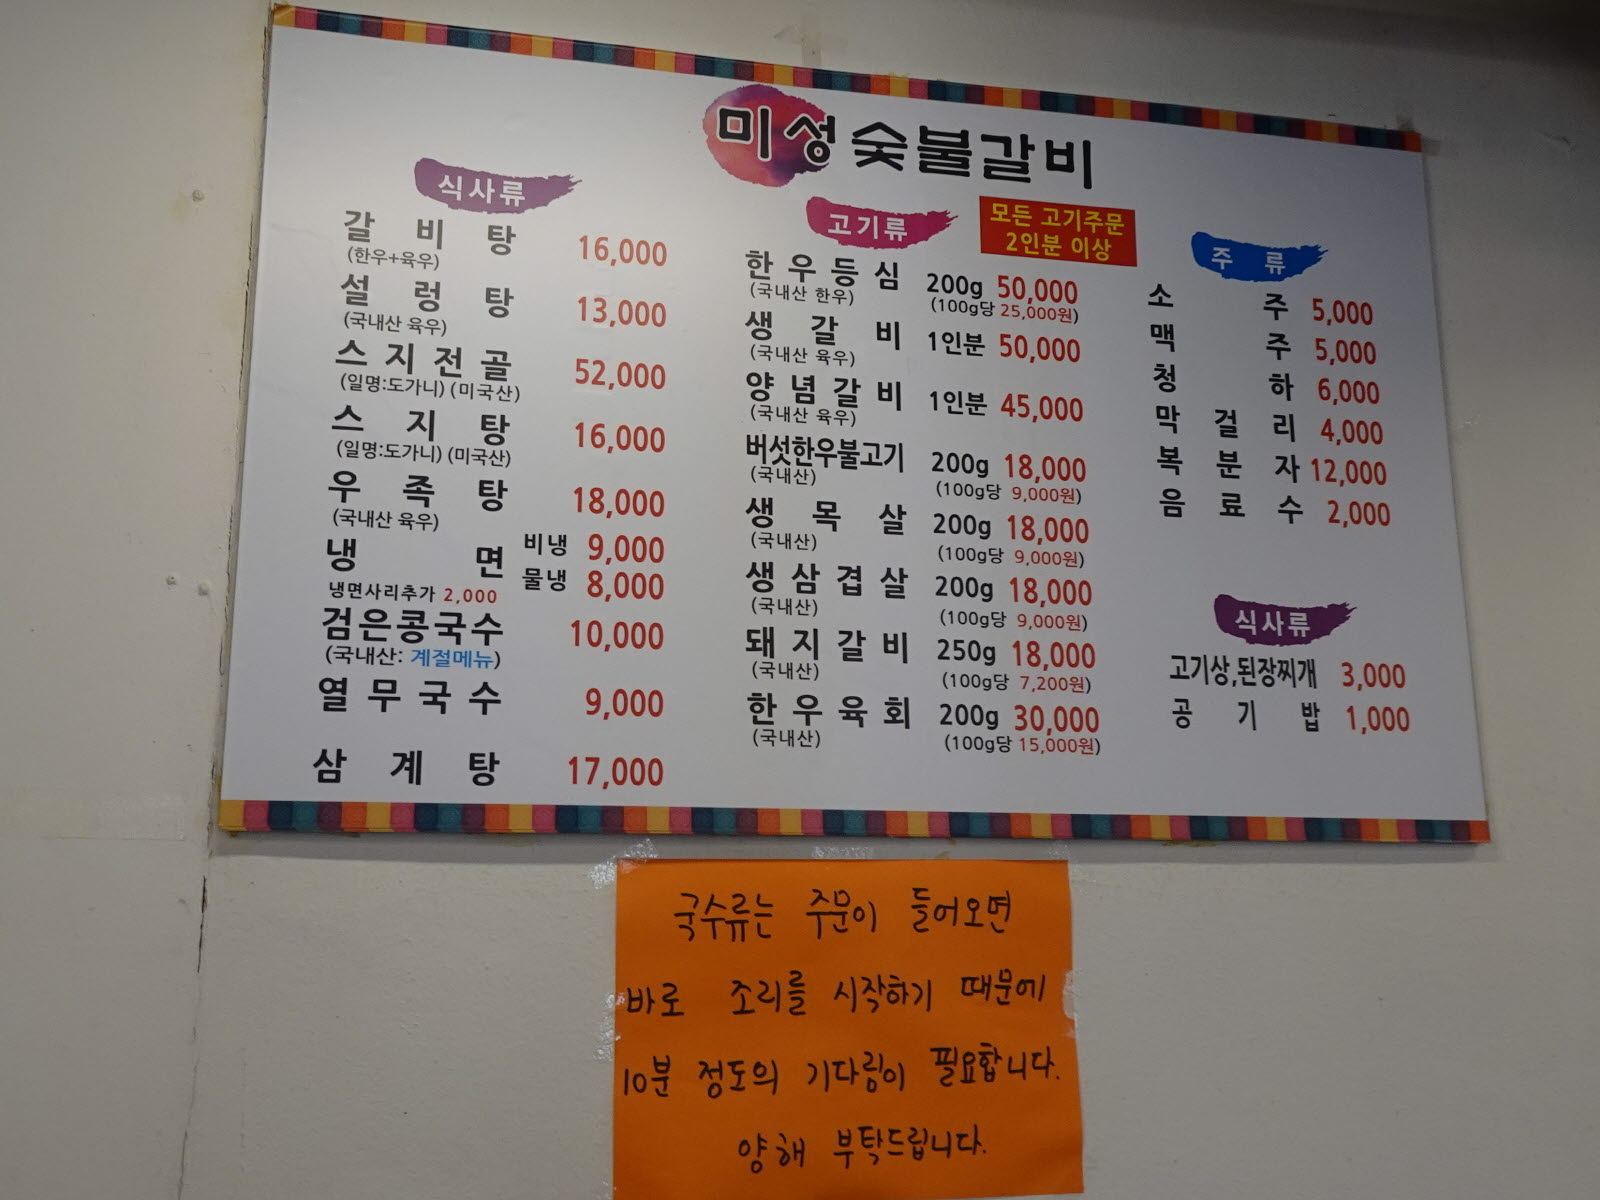 미성숯불갈비
식사류
갈비탕 16,000
(한우+육우)
설렁탕 13,000
(국내산 육우)
스지전골 52,000
(일명:도가니) (미국산)
스지탕 16,000
(일명:도가니) (미국산)
우족탕 18,000
(국내산 육우)
냉면 비냉 9,000
물냉 8,000
냉면사리추가 2,000
검은콩국수 10,000
(국내산: 계절메뉴)
열무국수 9,000
삼계탕 17,000
고기류
모든 고기주문
2인분 이상
한우등심 200g 50,000
(국내산 한우) (100g당 25,000원)
생갈비 1인분 50,000
(국내산 육우)
양념갈비 1인분 45,000
(국내산 육우)
버섯한우불고기 200g 18,000
(국내산) (100g당 9,000원)
생목살 200g 18,000
(국내산) (100g당 9,000원)
생삼겹살 200g 18,000
(국내산) (100g당 9,000원)
돼지갈비 250g 18,000
(국내산) (100g당 7,200원)
한우육회 200g 30,000
(국내산) (100g당 15,000원)
주류
소주 5,000
맥주 5,000
청하 6,000
막걸리 4,000
복분자 12,000
음료수 2,000
식사류
고기상,된장찌개 3,000
공기밥 1,000
국수류는 주문이 들어오면
바로 조리를 시작하기 때문에
10분 정도의 기다림이 필요합니다.
양해 부탁드립니다.